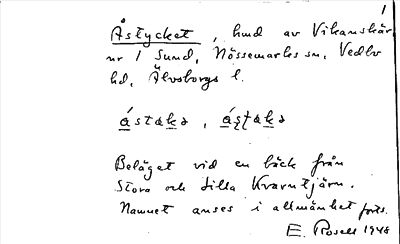 1
Åstycket, hmd av Vikanskär
nr 1 Sund, Nössemarks sn, Vedbo
hd, Älvsborgs l.
ástaks, ástaks
Beläget vid en bäck från
Stora och Lilla Kvarntjärn.
Namnet anses i allmänhet forts.
E. Rosell 1948